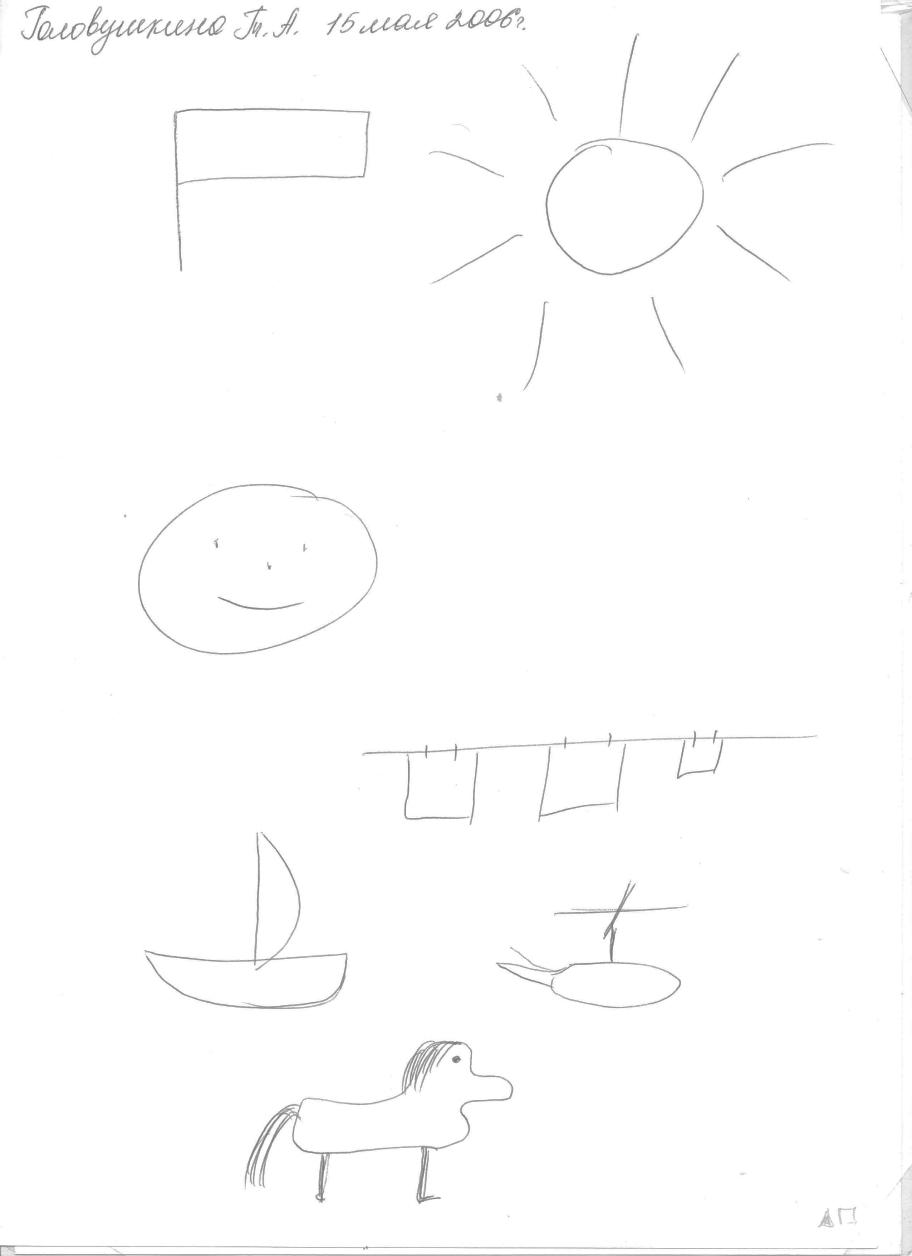 Головушкина Т. А. 15 мая 2006г.
ДП